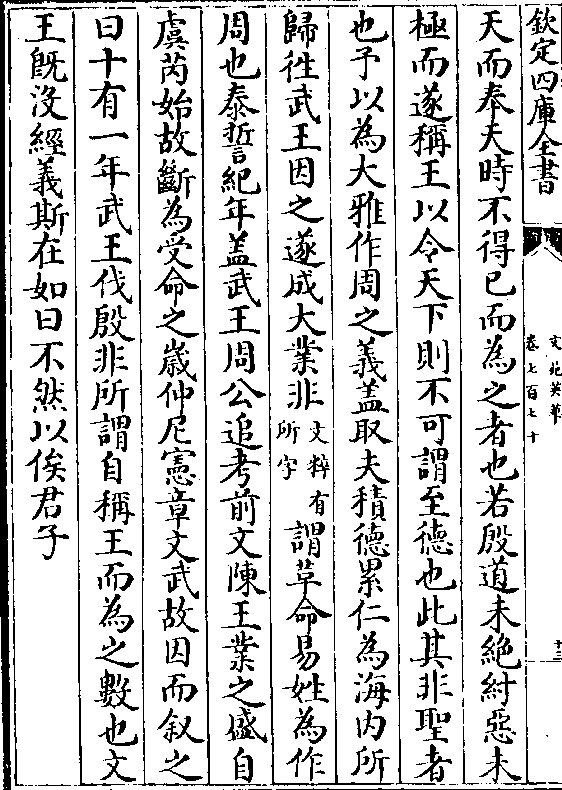 欽定四庫全書
文苑英華
卷七百七十
十三
天而奉天時不得已而為之者也若殷道未絶紂惡未
極而遂稱王以令天下則不可謂至德也此其非聖者
也予以為大雅作周之義蓋取夫積德累仁為海内所
歸徃武王因之遂成大業非文粹有所字謂革命易姓為作
周也泰誓紀年蓋武王周公追考前文陳王業之盛自
虞芮始故斷為受命之歳仲尼憲章文武故因而叙之
曰十有一年武王伐殷非所謂自稱王而為之數也文
王既沒經義斯在如曰不然以俟君子